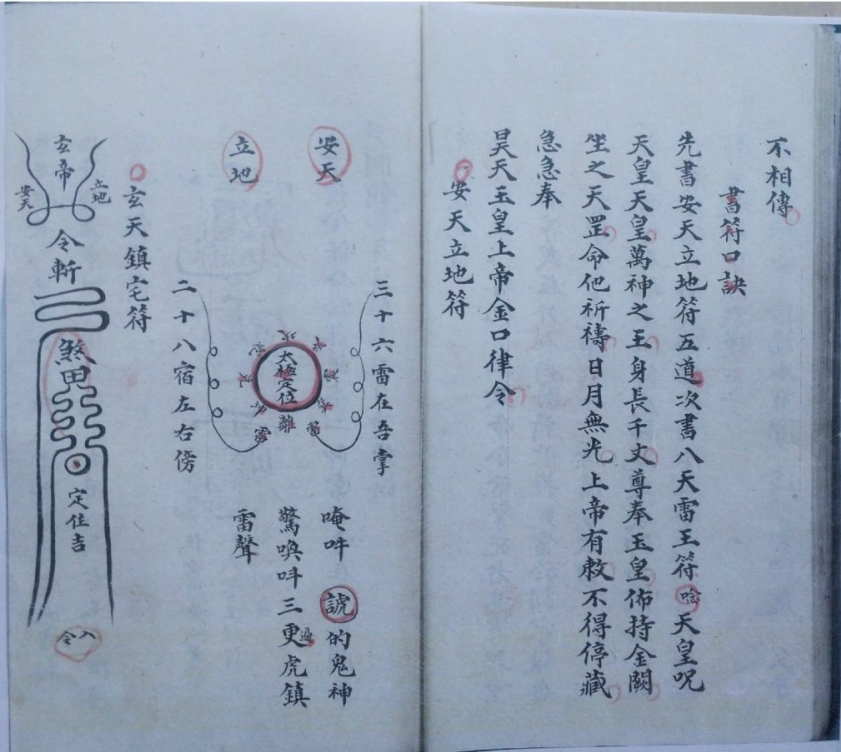 不相傳
書符口訣
先書安天立地符五道次書八天雷王符唸天皇咒
天皇天皇萬神之王身長千丈尊奉玉皇佈持金闕
坐之天罡命他祈禱日月無光上帝有敕不得停藏
急急奉
昊天玉皇上帝金口律令
安天立地符
三十六雷在吾掌
安天
唵吽諕的鬼神
驚喚吽三更虎鎮
太極定位
離
雷
立地
雷聲
二十八宿左右傍
玄天鎮宅符
立地
玄帝
安天
令斬
煞
定住吉
入令